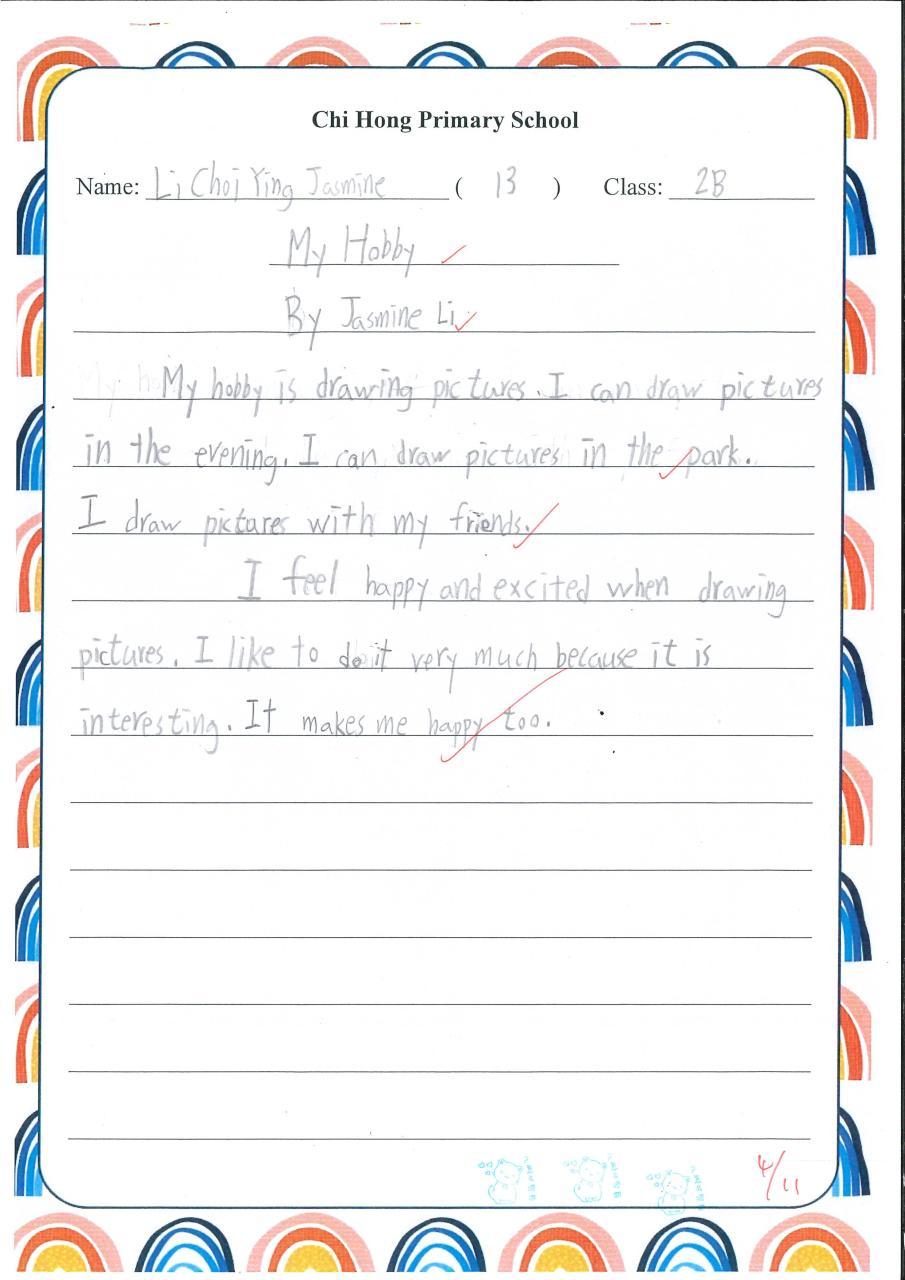 Chi Hong Primary School
Name: Li Choi Ying Jasmine ( 13 ) Class: 2B
My Hobby
By Jasmine Li
My hobby is drawing pictures. I can draw pictures
in the evening. I can draw pictures in the park.
I draw pictures with my friends.
I feel happy and excited when drawing
pictures. I like to do it very much because it is
interesting. It makes me happy too.
4/11